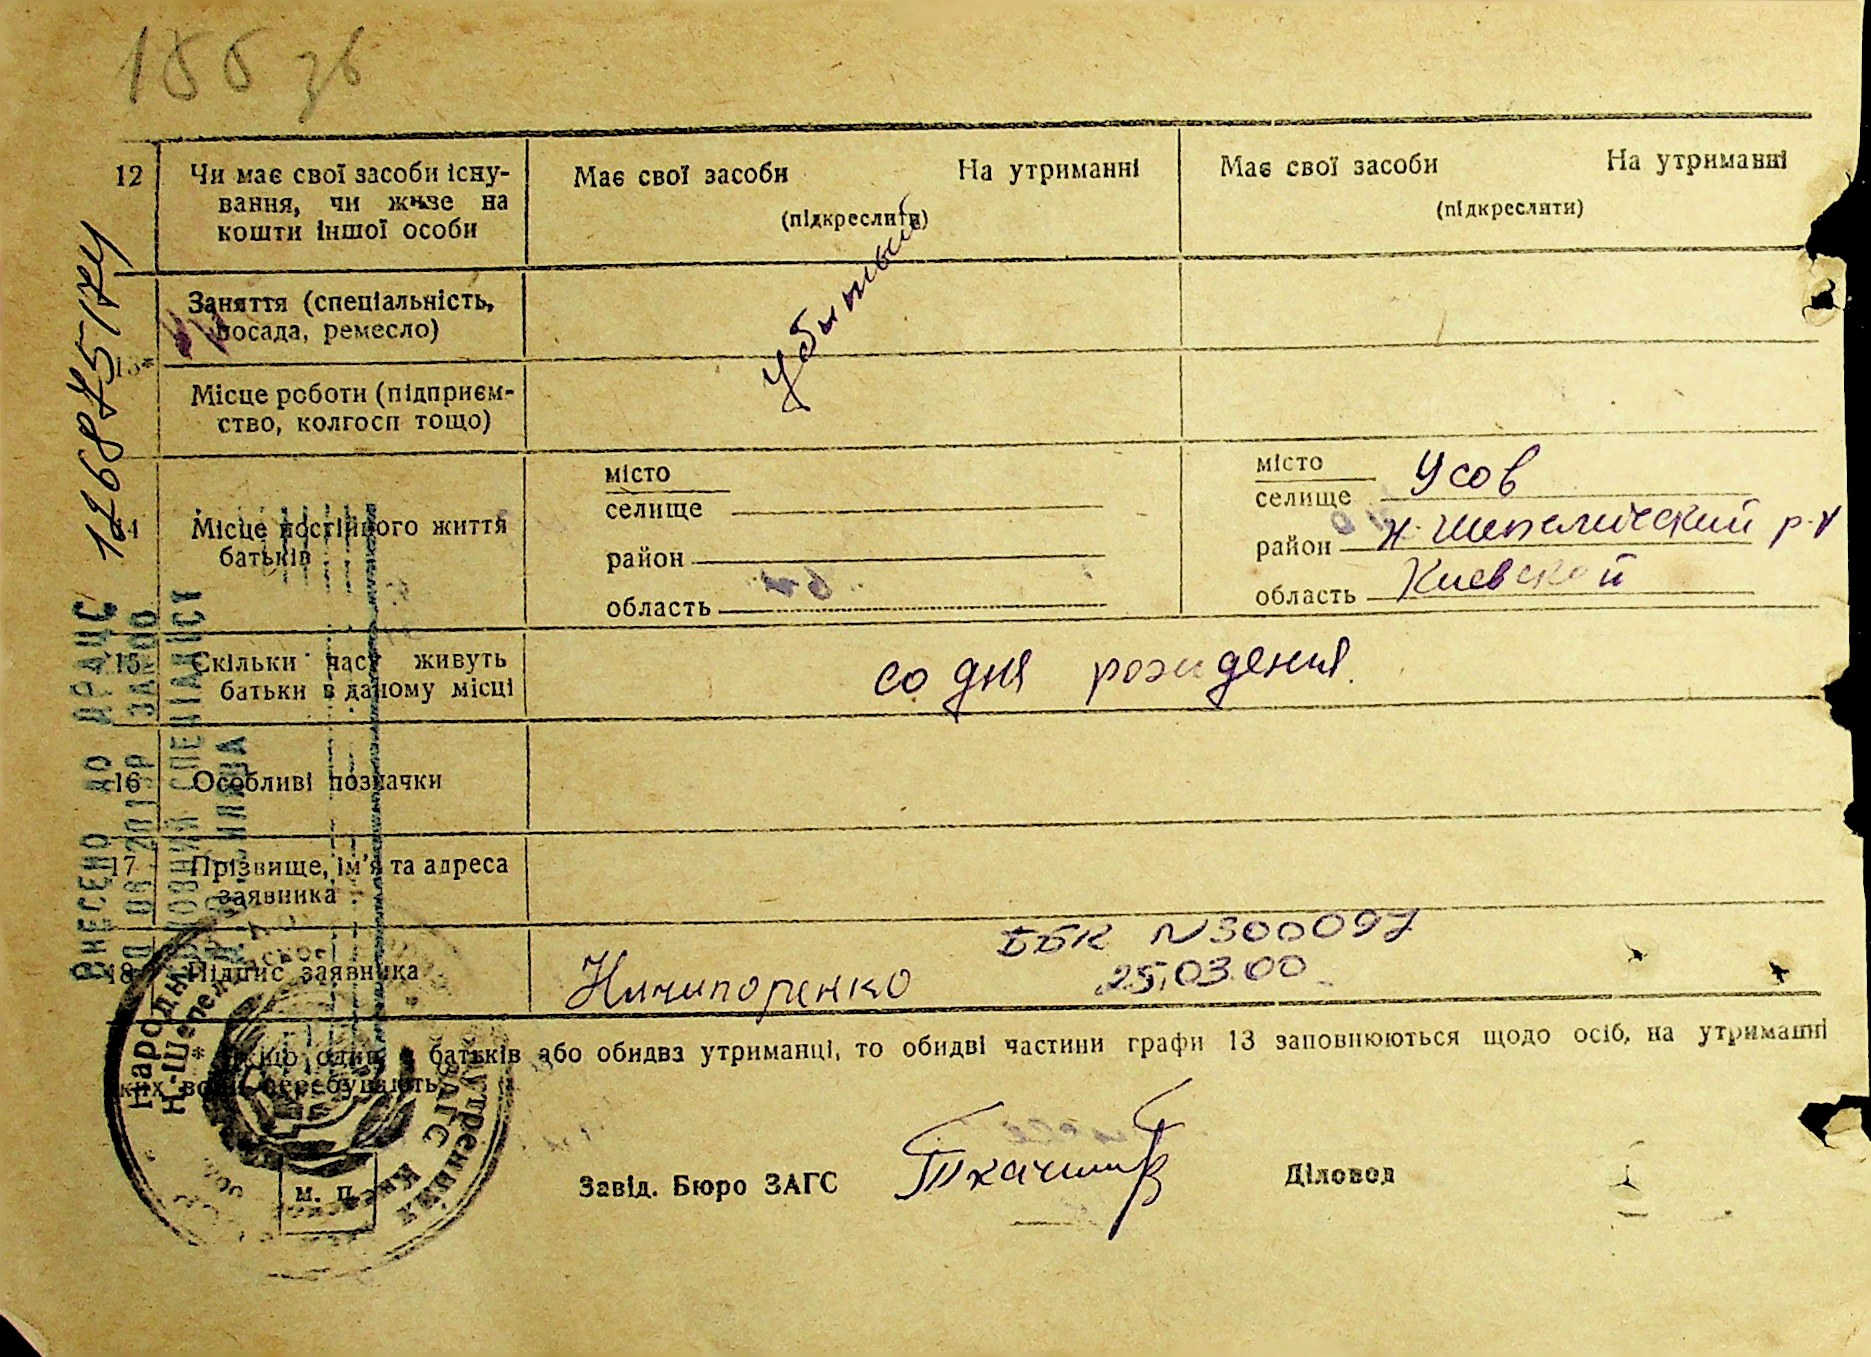 155 зв
12 Чи має свої засоби існу-
вання, чи живе на
кошти іншої особи
Має свої засоби На утриманні
(підкреслити)
Має свої засоби На утриманні
(підкреслити)
13*
Заняття (спеціальність,
посада, ремесло)
Місце роботи (підприєм-
ство, колгосп тощо)
14 Місце постійного життя
батьків
місто
селище
район
область
місто
селище Усов
район Н. Шепеличский р-н
область Киевской
15 Скільки часу живуть
батьки в даному місці
со дня рождения.
16 Особливі позначки
17 Прізвище, ім'я та адреса
заявника
18 Підпис заявника
Ничипоренко
ББК N300097
25.03.00
* Якщо один з батьків або обидва утриманці, то обидві частини графи 13 заповнюються щодо осіб, на утриманні
яких вони перебувають.
м. п.
Завід. Бюро ЗАГС
Діловод
ВНЕСЕНО ДО ДРАЦС
ПРОВІДНИЙ СПЕЦІАЛІСТ